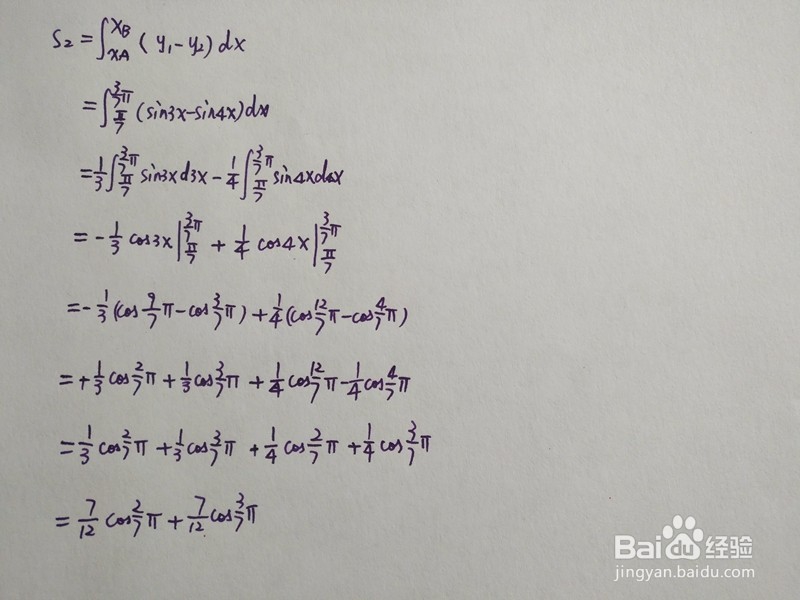 S₂ = ∫_{xA}^{xB} (y₁-y₂) dx
= ∫_{π/7}^{3/7 π} (sin3x-sin4x)dx
= 1/3 ∫_{π/7}^{3/7 π} sin3x d3x - 1/4 ∫_{π/7}^{3/7 π} sin4x d4x
= -1/3 cos3x |_{π/7}^{3/7 π} + 1/4 cos4x |_{π/7}^{3/7 π}
= -1/3 (cos 9/7 π - cos 3/7 π) + 1/4 (cos 12/7 π - cos 4/7 π)
= +1/3 cos 2/7 π + 1/3 cos 3/7 π + 1/4 cos 12/7 π - 1/4 cos 4/7 π
= 1/3 cos 2/7 π + 1/3 cos 3/7 π + 1/4 cos 2/7 π + 1/4 cos 3/7 π
= 7/12 cos 2/7 π + 7/12 cos 3/7 π
Bai du 经验
jingyan.baidu.com